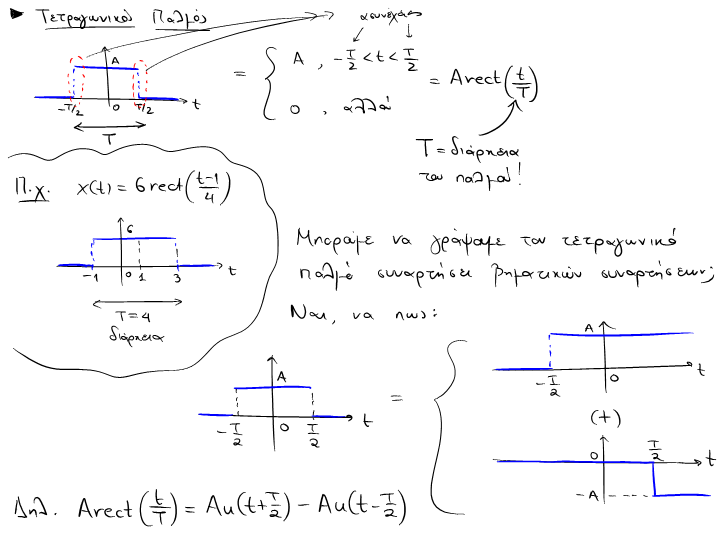 ▶ Τετραγωνικός Παλμός
ασυνέχειες
A
-T/2 0 T/2 t
T
= { A , -T/2 < t < T/2
0 , αλλού
= A rect(t/T)
T = διάρκεια
του παλμού!
Π.χ. x(t) = 6 rect((t-1)/4)
6
-1 0 1 3 t
T = 4
διάρκεια
Μπορούμε να γράψουμε τον τετραγωνικό
παλμό συναρτήσει βηματικών συναρτήσεων;
Ναι, να πως:
A
-T/2 0 T/2 t
=
A
-T/2 0 t
(+)
0 T/2 t
-A
Δηλ. A rect(t/T) = Au(t+T/2) - Au(t-T/2)